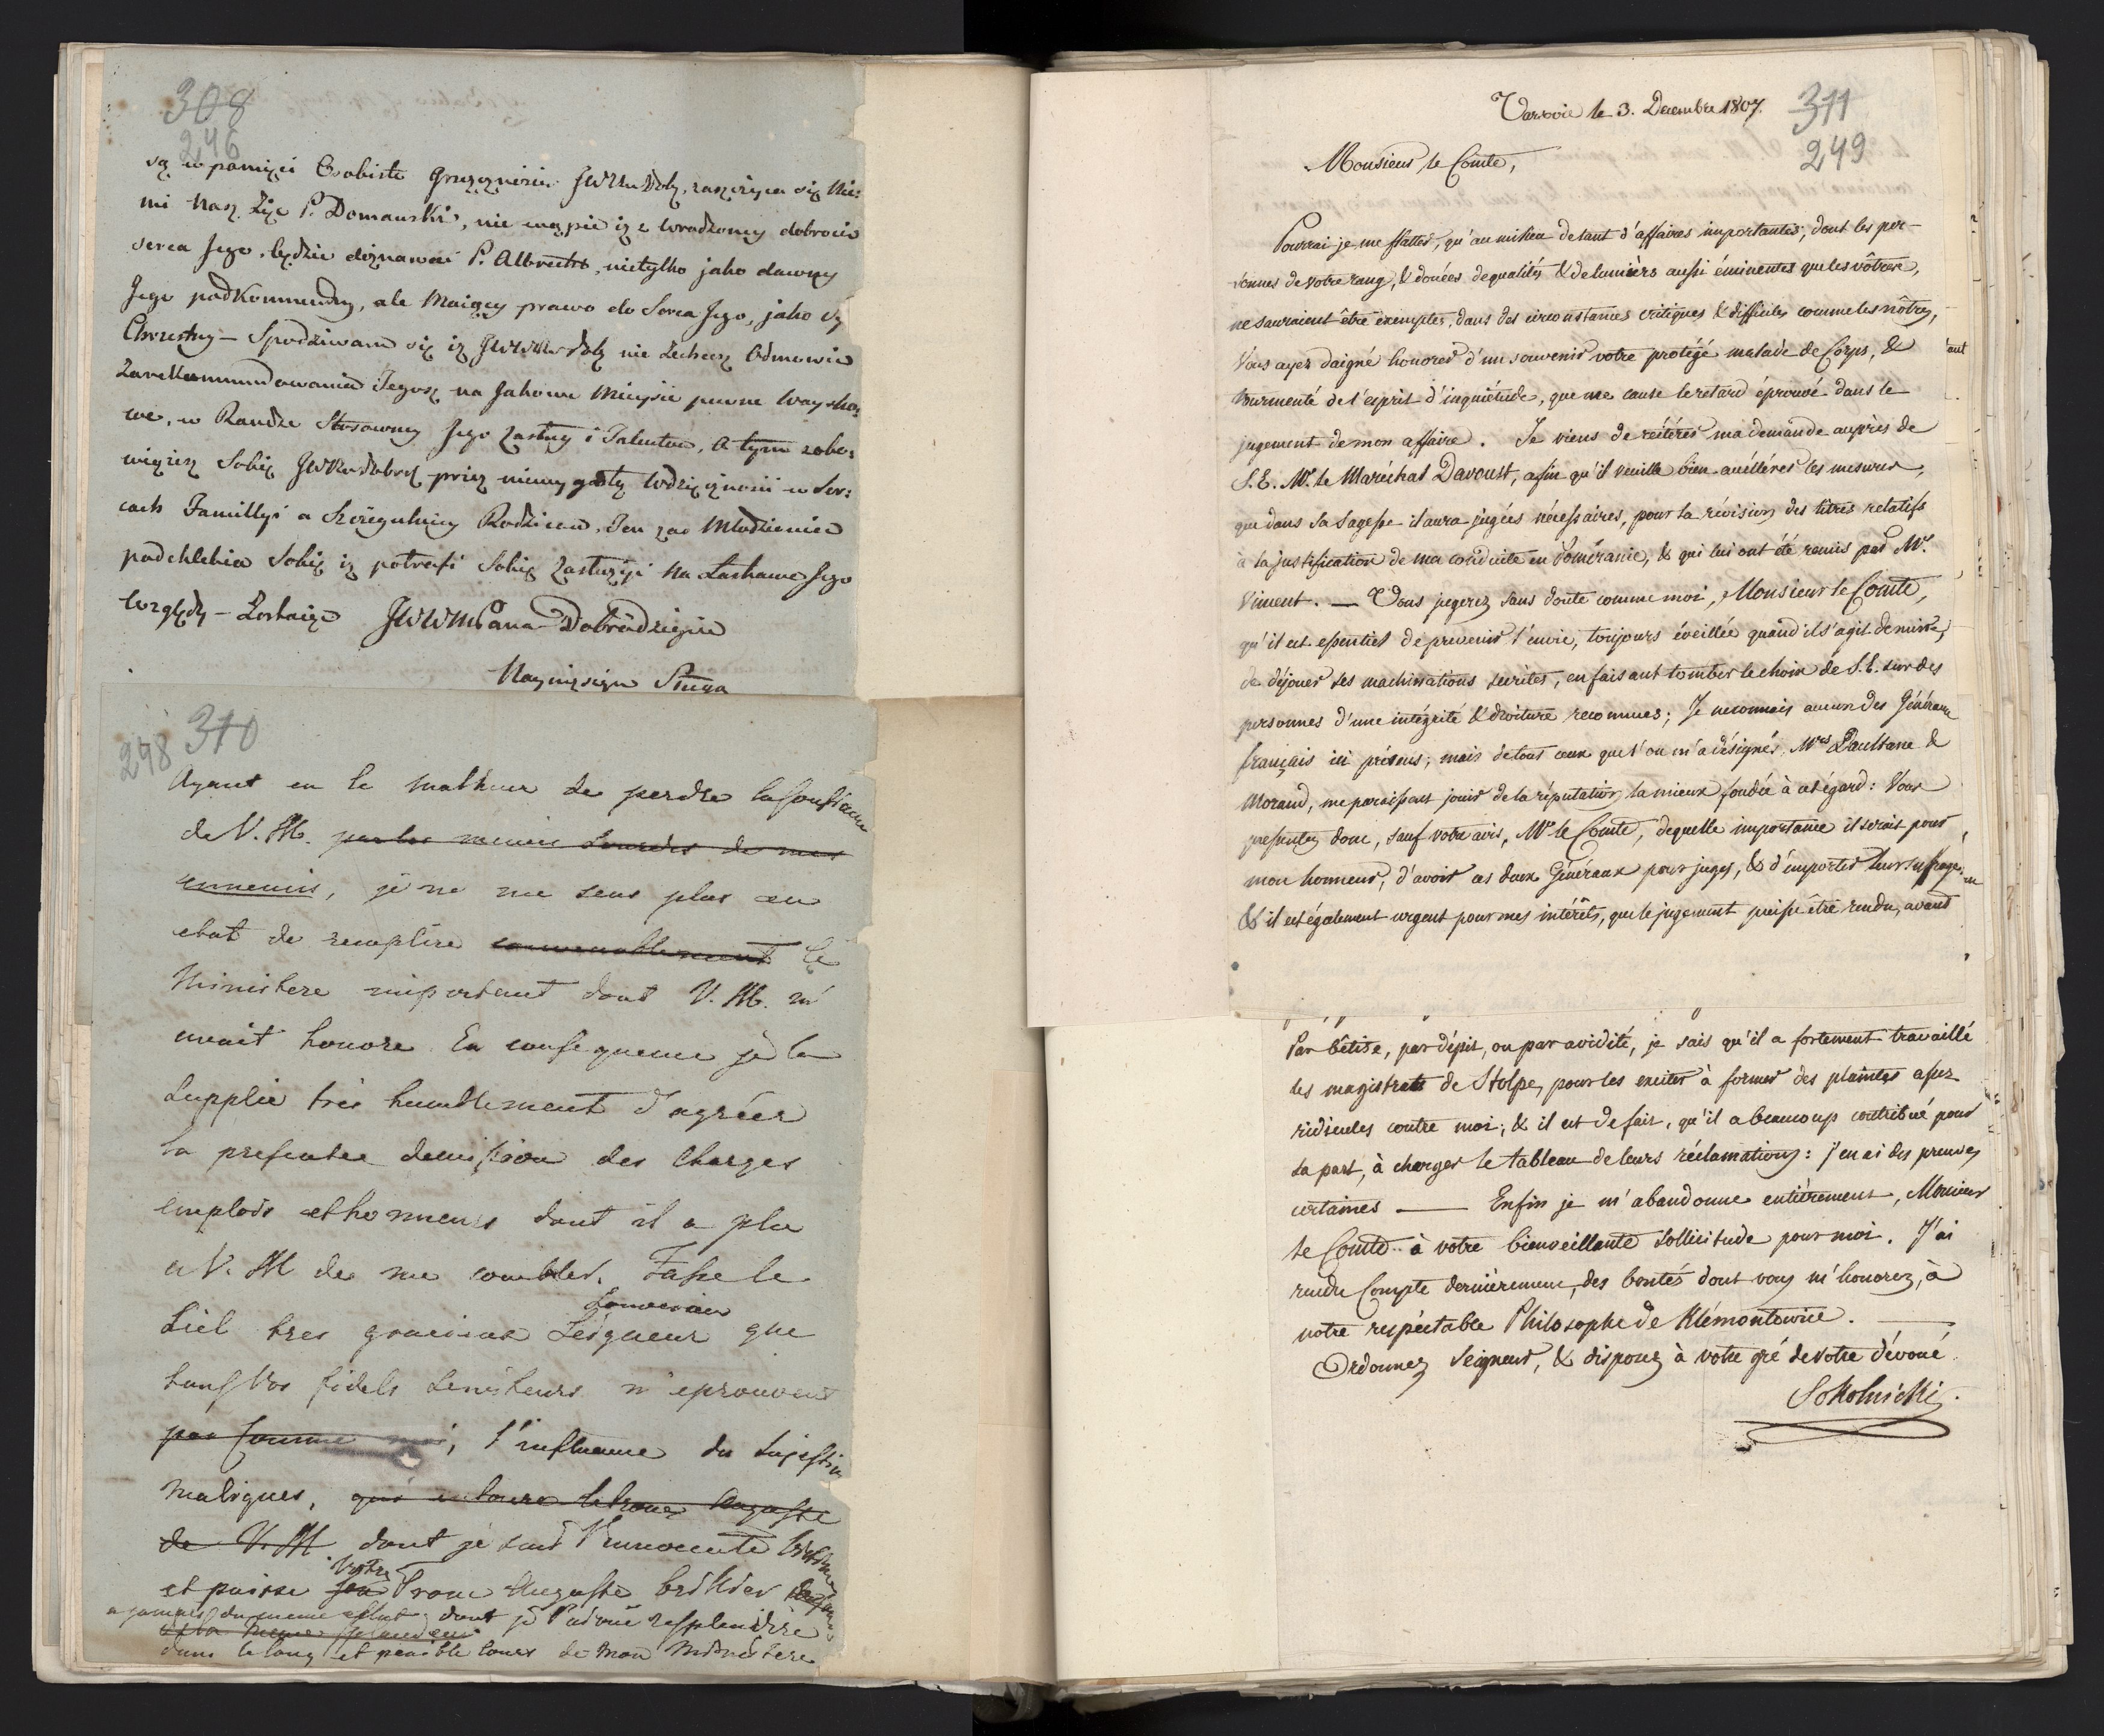 308
246
są w pamięci Osobiste Grzeczności JWWdobr, zaszczyca się Nie:
mi Nasz Zięc P. Domanski, nie wąpie iż z wrodzoney dobroci
serca Jego, będzie doznawać P. Albrecht, nietylko jako dawny
Jego podkommendny, ale Maiący prawo do Serca Jego, jako Syn
Chrzestny – Spodziewam się iż JWW dobr nie Zechcesz Odmowić
Zarekommendowania Tegosz na Jakowe Mieysce pewne Woysko:
we, w Randze Stosowney Jego Zasług i Talentów, A tym zobo:
wiążesz Sobie JWWdobr przez niewygasłę Wdzięczność w Ser:
cach Familiyi a Szczegulniey Rodziców. Ten zas Młodzieniec
podchlebia Sobie iż potrafi Sobie Zasłużyć Na Łaskawe Jego
Względy – Zostaiąc JWWMPana Dobrodzieja
Nayniższym Sługą
310
248
Ayant eu le malheur de perdre la confiance
de V. M. par les menées sourdes de mes
ennemis, je ne me sens plus en
etat de remplire convenablement le
Ministere important dont V. M. m'
avait honore. En consequence je la
Supplie tres humblement d'agréer
la presentee demission des charges
emplois et honneurs dont il a plu
a V. M de me combler. Fasse le
Souverain
Ciel tres gracieux Seigneur que
tous Vos fidels Serviteurs n'eprouvent
pas comme moi, l'influence du sugestions
malignes, qui entoure le trone Auguste
de V. M dont je suis l'innocente Victime
Votre
et puisse son Trone Auguste briller
a jamais du meme eclat dont je l'ai vue resplendire
et la meme splendeur
dans le long et penible cours de mon Ministere
Varsovie le 3. Decembre 1807.
311
249
Monsieur le Comte,
Pourrai je me flatter, qu'au milieu de tant d'affaires importantes, dont les per-
sonnes de votre rang, & douées de qualités & de lumières aussi éminentes que les vôtres,
ne sauraient être exemptes, dans des circonstances critiques & difficiles comme les nôtres,
Vous ayez daigné honorer d'un souvenir votre protégé malade de Corps, &
tourmenté de l'esprit d'inquiétude, que me cause le retard éprouvé dans le
jugement de mon affaire. Je viens de réitérer ma demande auprès de
S.E. Mr. le Maréchal Davoust, afin qu'il veuille bien accélérer les mesures,
que dans sa sagesse il aura jugées nécessaires, pour la révision des titres relatifs
à la justification de ma conduite en Poméranie, & qui lui ont été remis par Mr.
Viment. — Vous jugerez sans doute comme moi, Monsieur le Comte,
qu'il est essentiel de prevenir l'envie, toujours éveillée quand il s'agit de nuire,
de déjouer ses machinations secrètes, en faisant tomber le choix de S.E. sur des
personnes d'une intégrité & droiture reconnues; Je ne connais aucun des Généraux
français ici présens; mais de tous ceux que l'on m'a désignés, Mrs Paultane &
Morand, me paraissent jouir de la réputation la mieux fondée à cet égard: Vous
pressentez donc, sauf votre avis, Mr. le Comte, de quelle importance il serait pour
mon honneur, d'avoir ces deux Généraux pour juges, & d'emporter leur suffrage;
& il est également urgent pour mes intérêts, que le jugement puisse être rendu, avant
tant
Par bêtise, par dépit, ou par avidité, je sais qu'il a fortement travaillé
les magistrats de Stolpe, pour les exciter à former des plaintes assez
ridicules contre moi, & il est de fait, qu'il a beaucoup contribué pour
sa part, à charger le tableau de leurs réclamations: j'en ai des preuves
certaines — Enfin je m'abandonne entièrement, Monsieur
le Comte à votre bienveillante sollicitude pour moi. J'ai
rendu Compte dernièrement, des bontés dont vous m'honorez, à
notre respectable Philosophe de Klémontowice. —
Ordonnez Seigneur, & disposez à votre gré de votre dévoué
Sokolnicki.